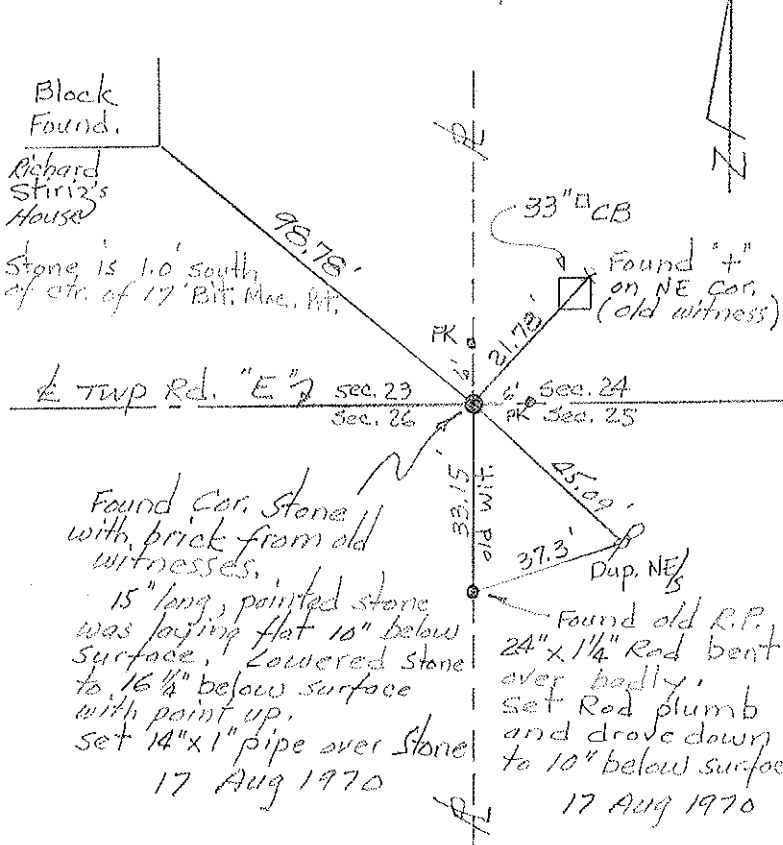 Block
Found.
Richard
Stiriz's
House
Stone is 1.0' south
of ctr. of 17' Bit. Mac. Pvt.
98.78'
33" □ CB
Found "+"
on NE Cor.
(old witness)
21.78'
PK
6'
℄ Twp Rd. "E"
Sec. 23
Sec. 26
6'
PK
Sec. 24
Sec. 25
33.15'
old wit.
45.09'
37.3'
Dup. NE/S
Found Cor. Stone
with brick from old
witnesses.
15" long, pointed stone
was laying flat 10" below
surface. Lowered Stone
to 16 1/4" below surface
with point up.
Set 14" x 1" pipe over Stone
17 Aug 1970
Found old R.P.
24" x 1 1/4" Rod bent
over badly.
Set Rod plumb
and drove down
to 10" below surfac
17 Aug 1970
N